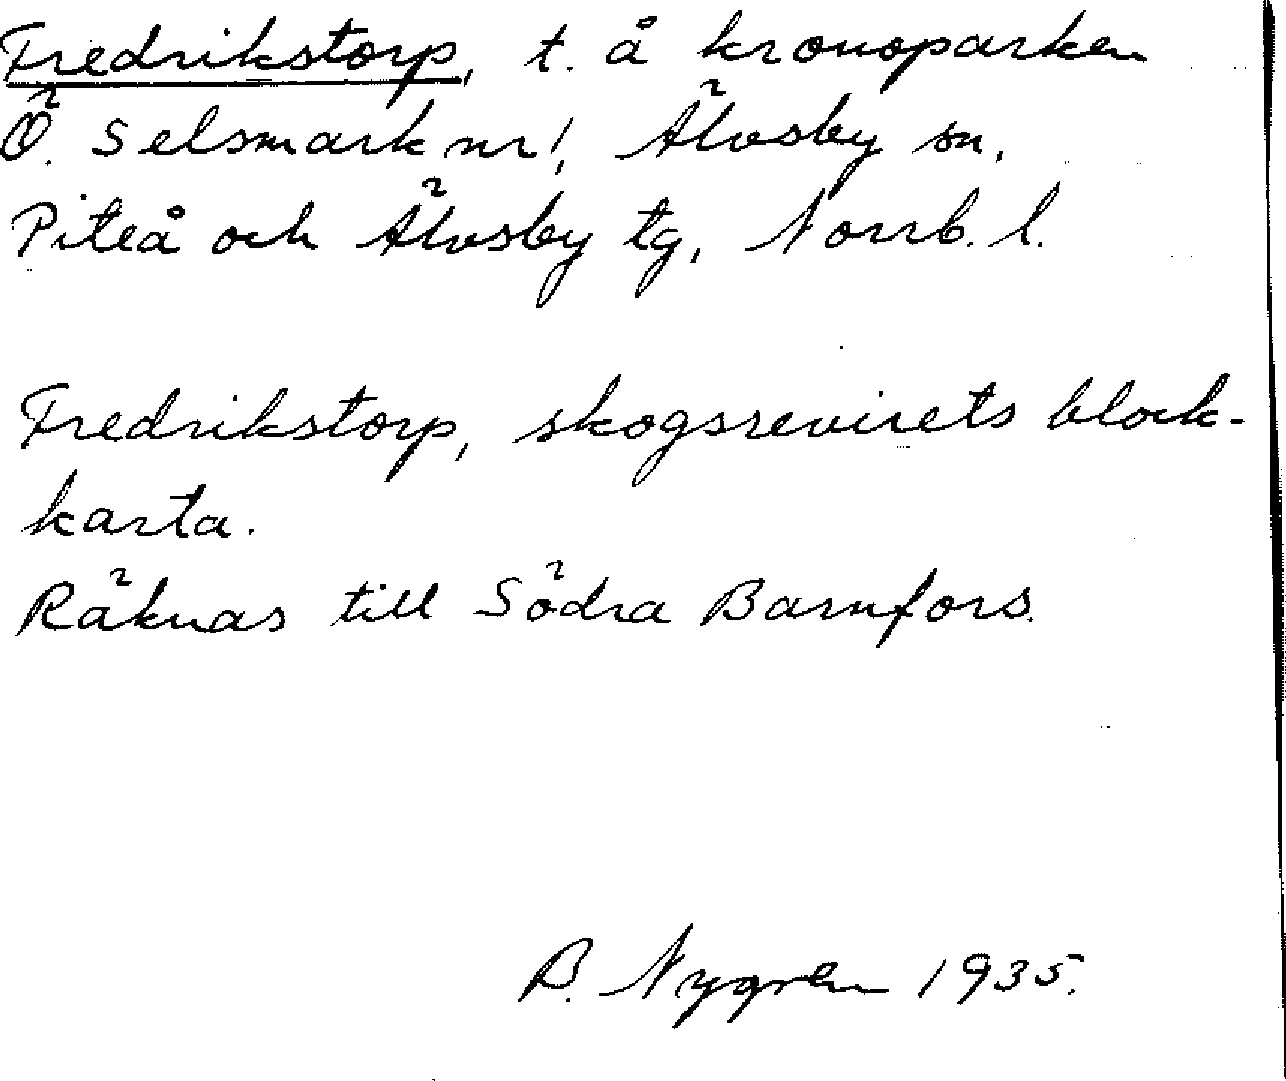 Fredrikstorp, t. å kronoparken
Ö. Selsmark nr 1, Älvsby sn,
Piteå och Älvsby tg, Norrb. l.
Fredrikstorp, skogsrevirets block-
karta.
Räknas till Södra Barnfors.
B. Nygren 1935.